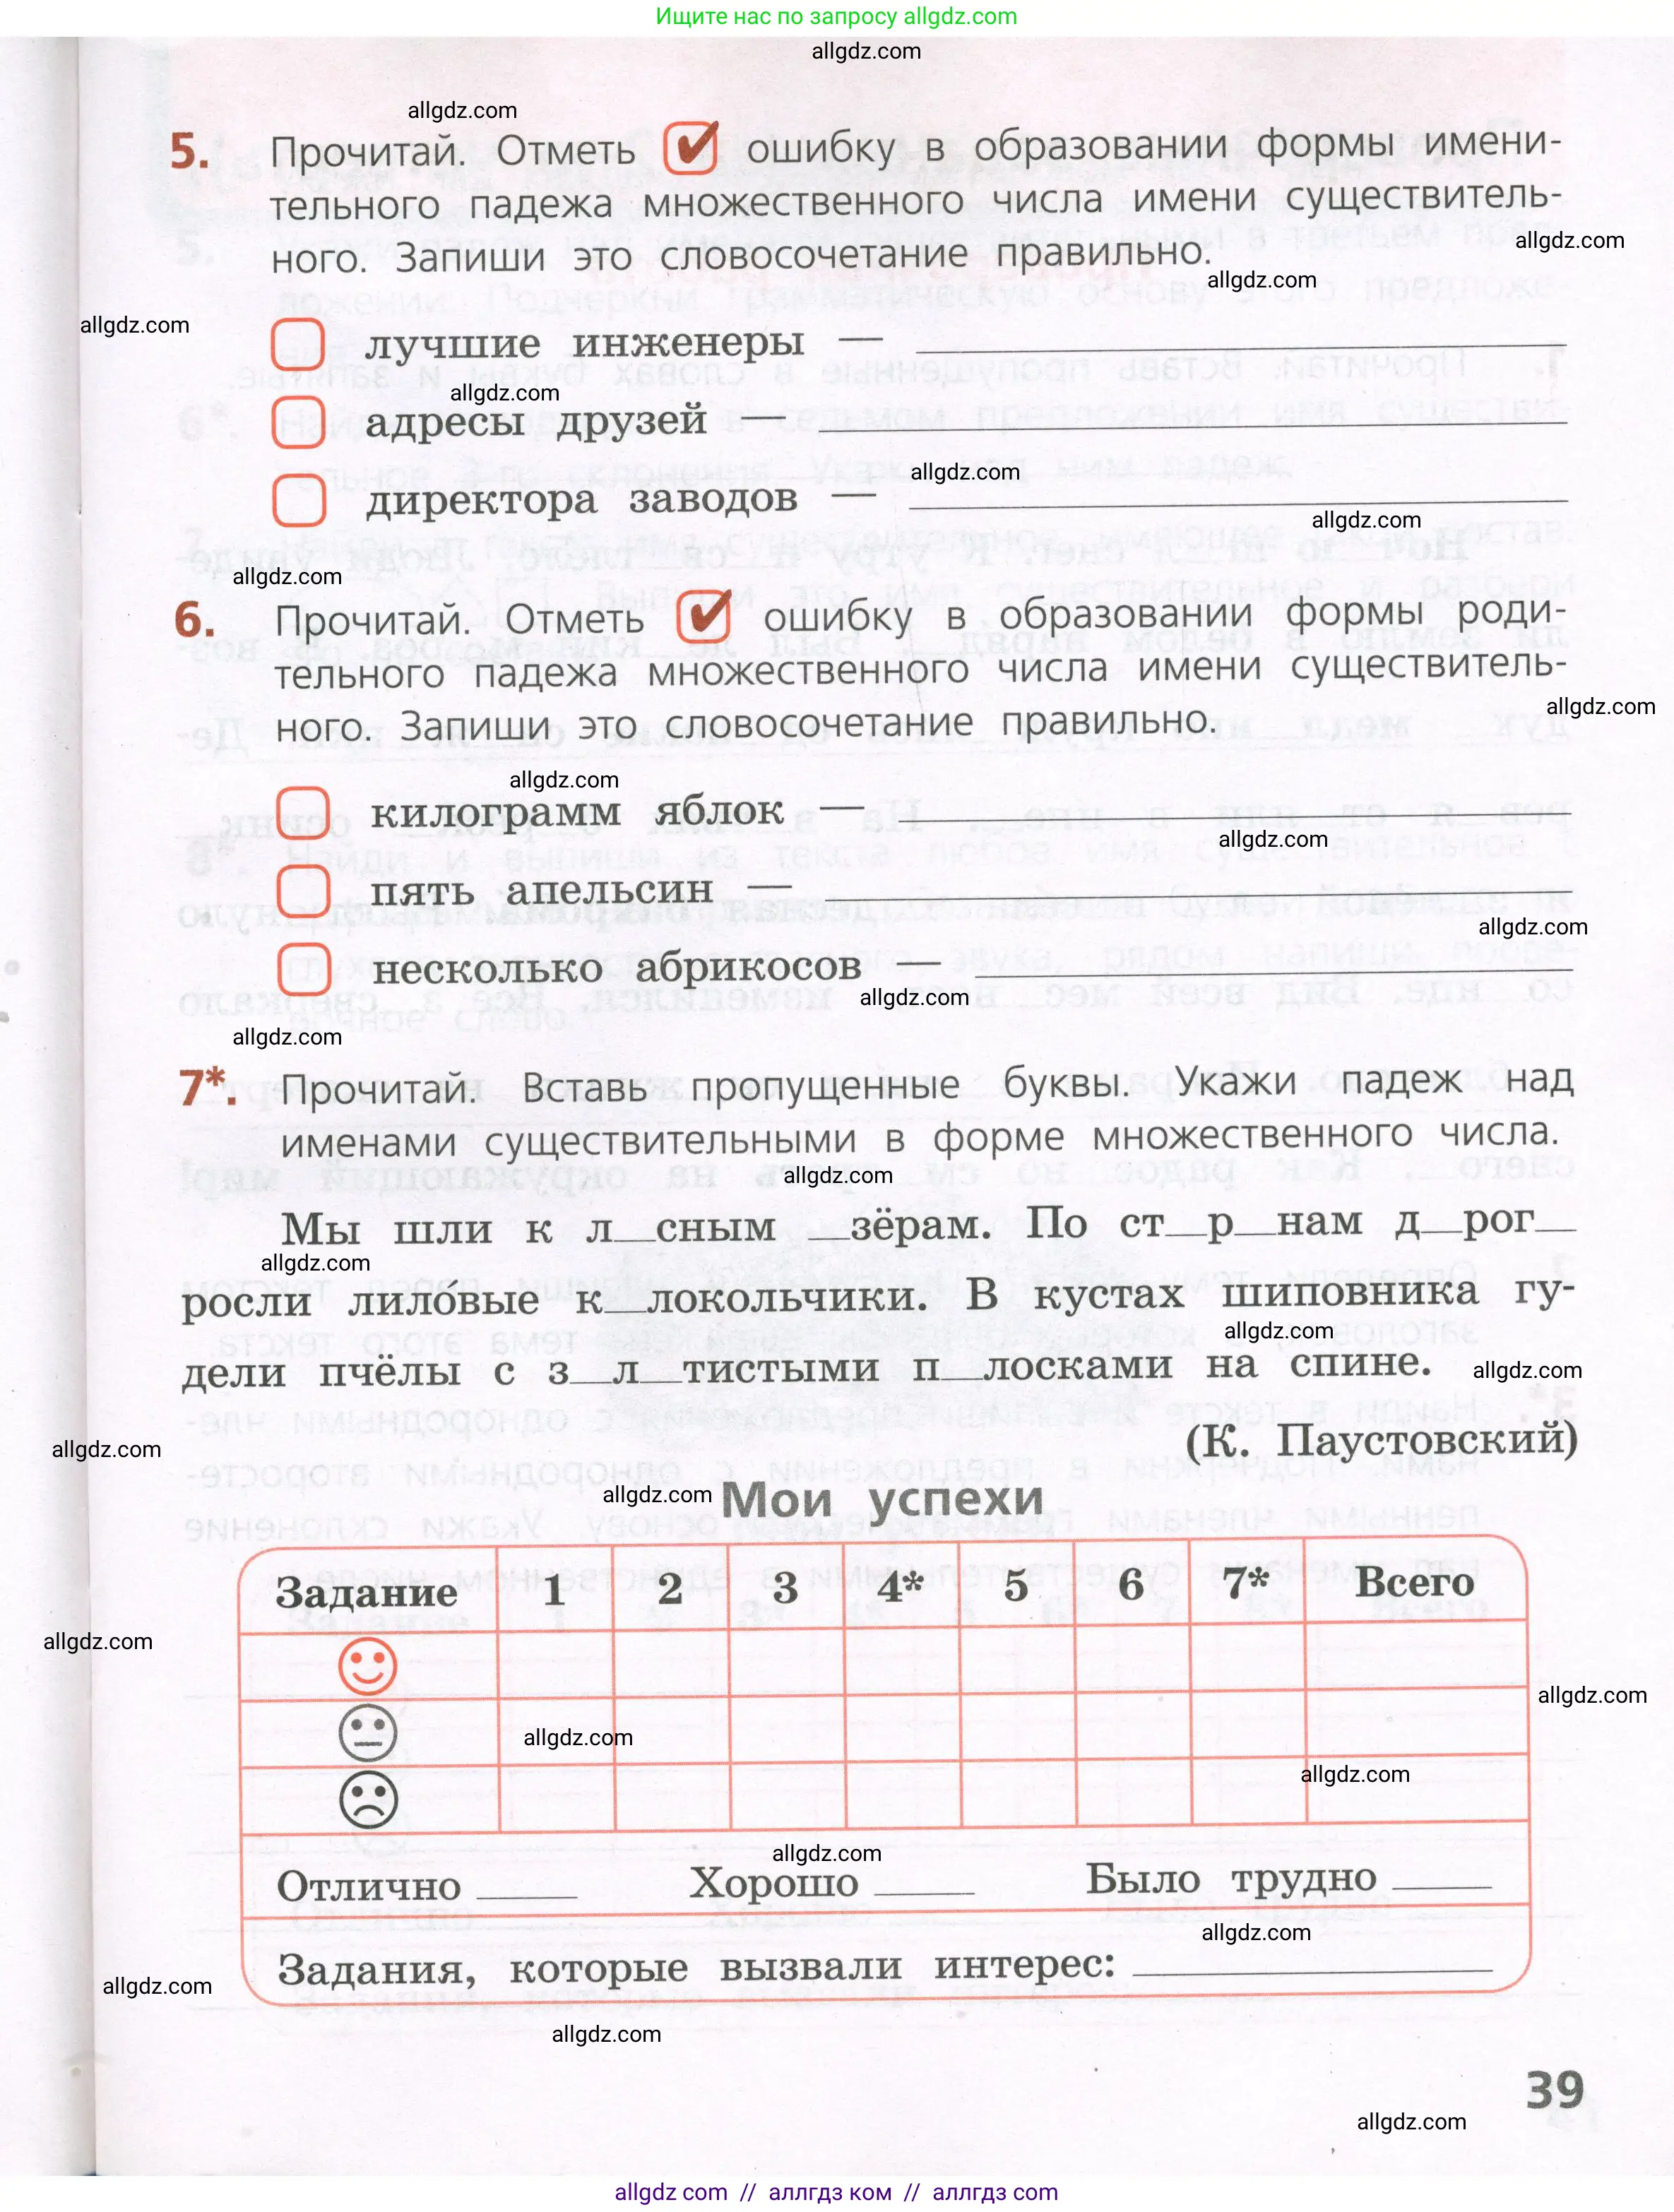 Ищите нас по запросу allgdz.com
allgdz.com
allgdz.com
5. Прочитай. Отметь ✔ ошибку в образовании формы имени-
тельного падежа множественного числа имени существитель-
allgdz.com
ного. Запиши это словосочетание правильно.
allgdz.com
allgdz.com
лучшие инженеры —
allgdz.com
адресы друзей —
allgdz.com
директора заводов —
allgdz.com
allgdz.com
6. Прочитай. Отметь ✔ ошибку в образовании формы роди-
тельного падежа множественного числа имени существитель-
allgdz.com
ного. Запиши это словосочетание правильно.
allgdz.com
килограмм яблок —
allgdz.com
пять апельсин —
allgdz.com
несколько абрикосов —
allgdz.com
allgdz.com
7*. Прочитай. Вставь пропущенные буквы. Укажи падеж над
именами существительными в форме множественного числа.
allgdz.com
Мы шли к л__сным __зёрам. По ст__р__нам д__рог__
allgdz.com
росли лило́вые к__локольчики. В кустах шиповника гу-
allgdz.com
дели пчёлы с з__л__тистыми п__лосками на спине.
allgdz.com
(К. Паустовский)
allgdz.com
allgdz.com
Мои успехи
Задание 1 2 3 4* 5 6 7* Всего
allgdz.com
allgdz.com
allgdz.com
allgdz.com
allgdz.com
Отлично ____ Хорошо ____ Было трудно ____
allgdz.com
Задания, которые вызвали интерес: ____
allgdz.com
allgdz.com
39
allgdz.com
allgdz com // аллгдз ком // аллгдз com